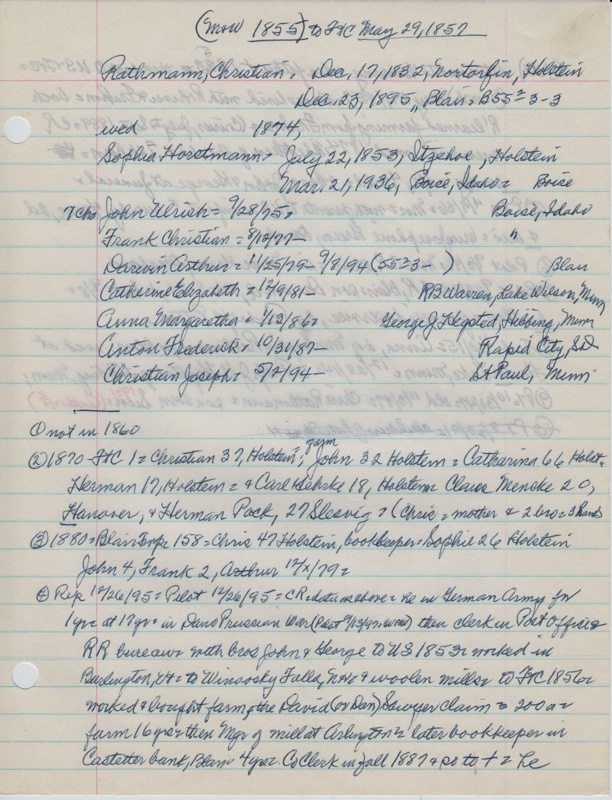 (MoW 1855) to FtC May 29, 1857
Rathmann, Christian, Dec. 17, 1832, Nortorfin, Holstein
Dec. 23, 1895, Blair = B55=3-3
wed 1874,
Sophia Horstmann = July 22, 1853, Itzehoe, Holstein
Mar. 21, 1936, Boise, Idaho = Boise
7 ch= John Ulrich = 9/28/75= Boise, Idaho
Frank Christian = 8/10/77- "
Darwin Arthur = 11/25/79- 9/8/94 (55=3- ) Blair
Catherine Elizabeth = 12/9/81- RB Warren, Lake Wilson, Minn
Anna Margaretha = 1/13/86= George J Hegsted, Hibbing, Minn
Anton Frederick = 10/31/87- Rapid City, SD
Christian Joseph = 5/2/94- St Paul, Minn
① not in 1860
② 1870 - FtC 1 = Christian 37, Holstein, farm John 32 Holstein = Catharina 66 Holst=
Herman 17, Holstein = & Carl 18, Holstein = Claus Meneke 20,
Hanover, & Herman Pock, 27 Slesvig = (Chris = mother & 2 bro = 3 hands
③ 1880 = Blair Twp 158 = Chris 47 Holstein, bookkeeper = Sophie 26 Holstein
John 4, Frank 2, Arthur 12/x/79=
④ Rep 12/26/95 = Pilot 12/26/95 = CR = data as above = he in German Army for
1 yr = at 17 yr = in Dano Prussian War then clerk in Post Office &
RR bureau = with bros John & George to US 1853 = worked in
Burlington, Vt = to Winoosky Falls, & woolen mills = to FtC 1856=
worked & bought farm, the David (or Dan) Sawyer claim = 200 a=
farm 16 yrs = then Mgr of mill at Arlington = later bookkeeper in
Castetter bank, Blair 4 yrs= Co Clerk in fall 1887 & so to + = he